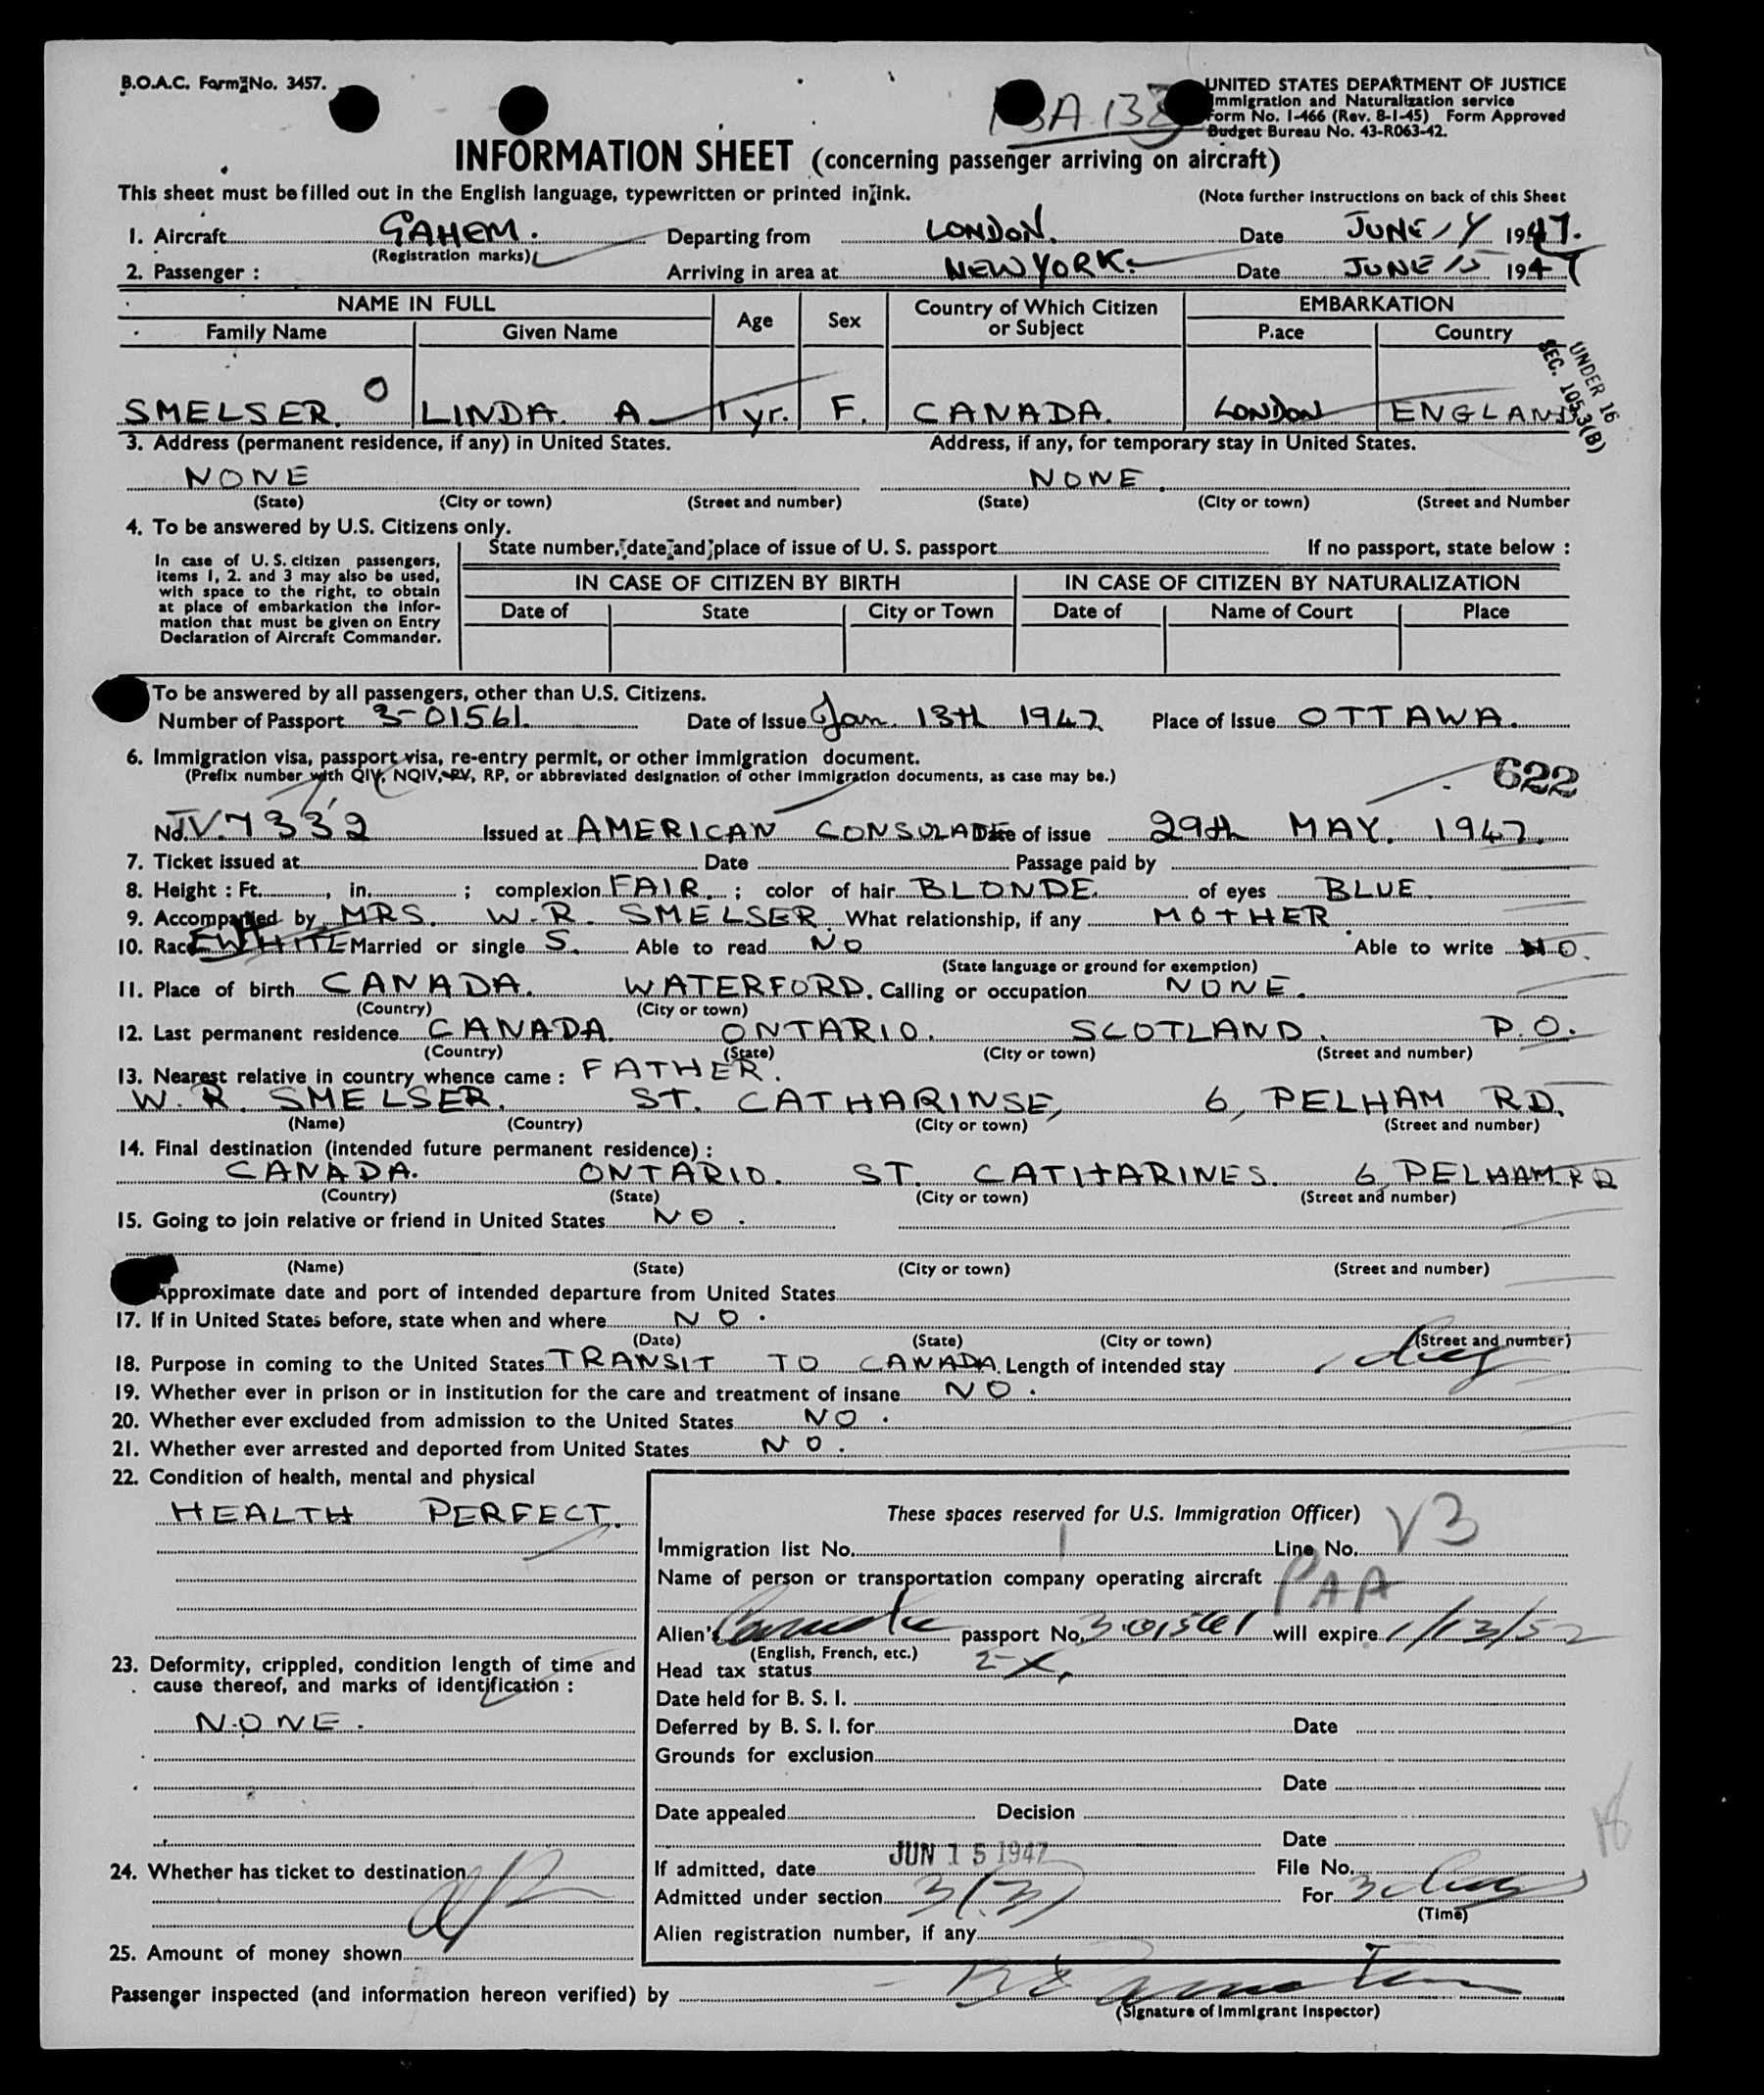 B.O.A.C. Form No. 3457.
UNITED STATES DEPARTMENT OF JUSTICE
Immigration and Naturalization service
Form No. I-466 (Rev. 8-1-45) Form Approved
Budget Bureau No. 43-R063-42.
INFORMATION SHEET (concerning passenger arriving on aircraft)
This sheet must be filled out in the English language, typewritten or printed in ink. (Note further instructions on back of this Sheet
1. Aircraft GAHEM. Departing from LONDON. Date JUNE 14 1947.
(Registration marks)
2. Passenger : Arriving in area at NEW YORK. Date JUNE 15 1947
NAME IN FULL Age Sex Country of Which Citizen or Subject EMBARKATION
Family Name Given Name P.ace Country
UNDER 16
SEC. 105.3(B)
SMELSER. LINDA. A 1 yr. F. CANADA. LONDON ENGLAND
3. Address (permanent residence, if any) in United States. Address, if any, for temporary stay in United States.
NONE NONE.
(State) (City or town) (Street and number) (State) (City or town) (Street and Number
4. To be answered by U.S. Citizens only.
State number, date and place of issue of U. S. passport If no passport, state below :
In case of U. S. citizen passengers,
items 1, 2. and 3 may also be used,
with space to the right, to obtain
at place of embarkation the infor-
mation that must be given on Entry
Declaration of Aircraft Commander.
IN CASE OF CITIZEN BY BIRTH IN CASE OF CITIZEN BY NATURALIZATION
Date of State City or Town Date of Name of Court Place
To be answered by all passengers, other than U.S. Citizens.
Number of Passport 3-01561. Date of Issue Jan. 13th 1947 Place of Issue OTTAWA.
6. Immigration visa, passport visa, re-entry permit, or other immigration document.
(Prefix number with QIV, NQIV, PV, RP, or abbreviated designation of other immigration documents, as case may be.)
622
No. TV. 7332 Issued at AMERICAN CONSULATE Date of issue 29th MAY. 1947.
7. Ticket issued at Date Passage paid by
8. Height : Ft. , in. ; complexion FAIR. ; color of hair BLONDE. of eyes BLUE.
9. Accompanied by MRS. W. R. SMELSER. What relationship, if any MOTHER.
10. Race WHITE Married or single S. Able to read NO Able to write NO.
(State language or ground for exemption)
11. Place of birth CANADA. WATERFORD. Calling or occupation NONE.
(Country) (City or town)
12. Last permanent residence CANADA. ONTARIO. SCOTLAND. P.O.
(Country) (State) (City or town) (Street and number)
13. Nearest relative in country whence came : FATHER.
W. R. SMELSER. ST. CATHARINSE, 6, PELHAM RD.
(Name) (Country) (City or town) (Street and number)
14. Final destination (intended future permanent residence) :
CANADA. ONTARIO. ST. CATHARINES. 6, PELHAM RD
(Country) (State) (City or town) (Street and number)
15. Going to join relative or friend in United States NO.
(Name) (State) (City or town) (Street and number)
Approximate date and port of intended departure from United States
17. If in United States before, state when and where NO.
(Date) (State) (City or town) (Street and number)
18. Purpose in coming to the United States TRANSIT TO CANADA. Length of intended stay
19. Whether ever in prison or in institution for the care and treatment of insane NO.
20. Whether ever excluded from admission to the United States NO.
21. Whether ever arrested and deported from United States NO.
22. Condition of health, mental and physical
HEALTH PERFECT.
These spaces reserved for U.S. Immigration Officer)
Immigration list No. 1 Line No. V3
Name of person or transportation company operating aircraft PAA
Alien's passport No. 3-01561 will expire 1/13/52
(English, French, etc.)
23. Deformity, crippled, condition length of time and
cause thereof, and marks of identification :
NONE.
Head tax status
Date held for B. S. I.
Deferred by B. S. I. for Date
Grounds for exclusion
Date
Date appealed Decision
Date
24. Whether has ticket to destination
If admitted, date JUN 15 1947 File No.
Admitted under section 3(3) For 3 days
(Time)
Alien registration number, if any
25. Amount of money shown
Passenger inspected (and information hereon verified) by
(Signature of Immigrant Inspector)